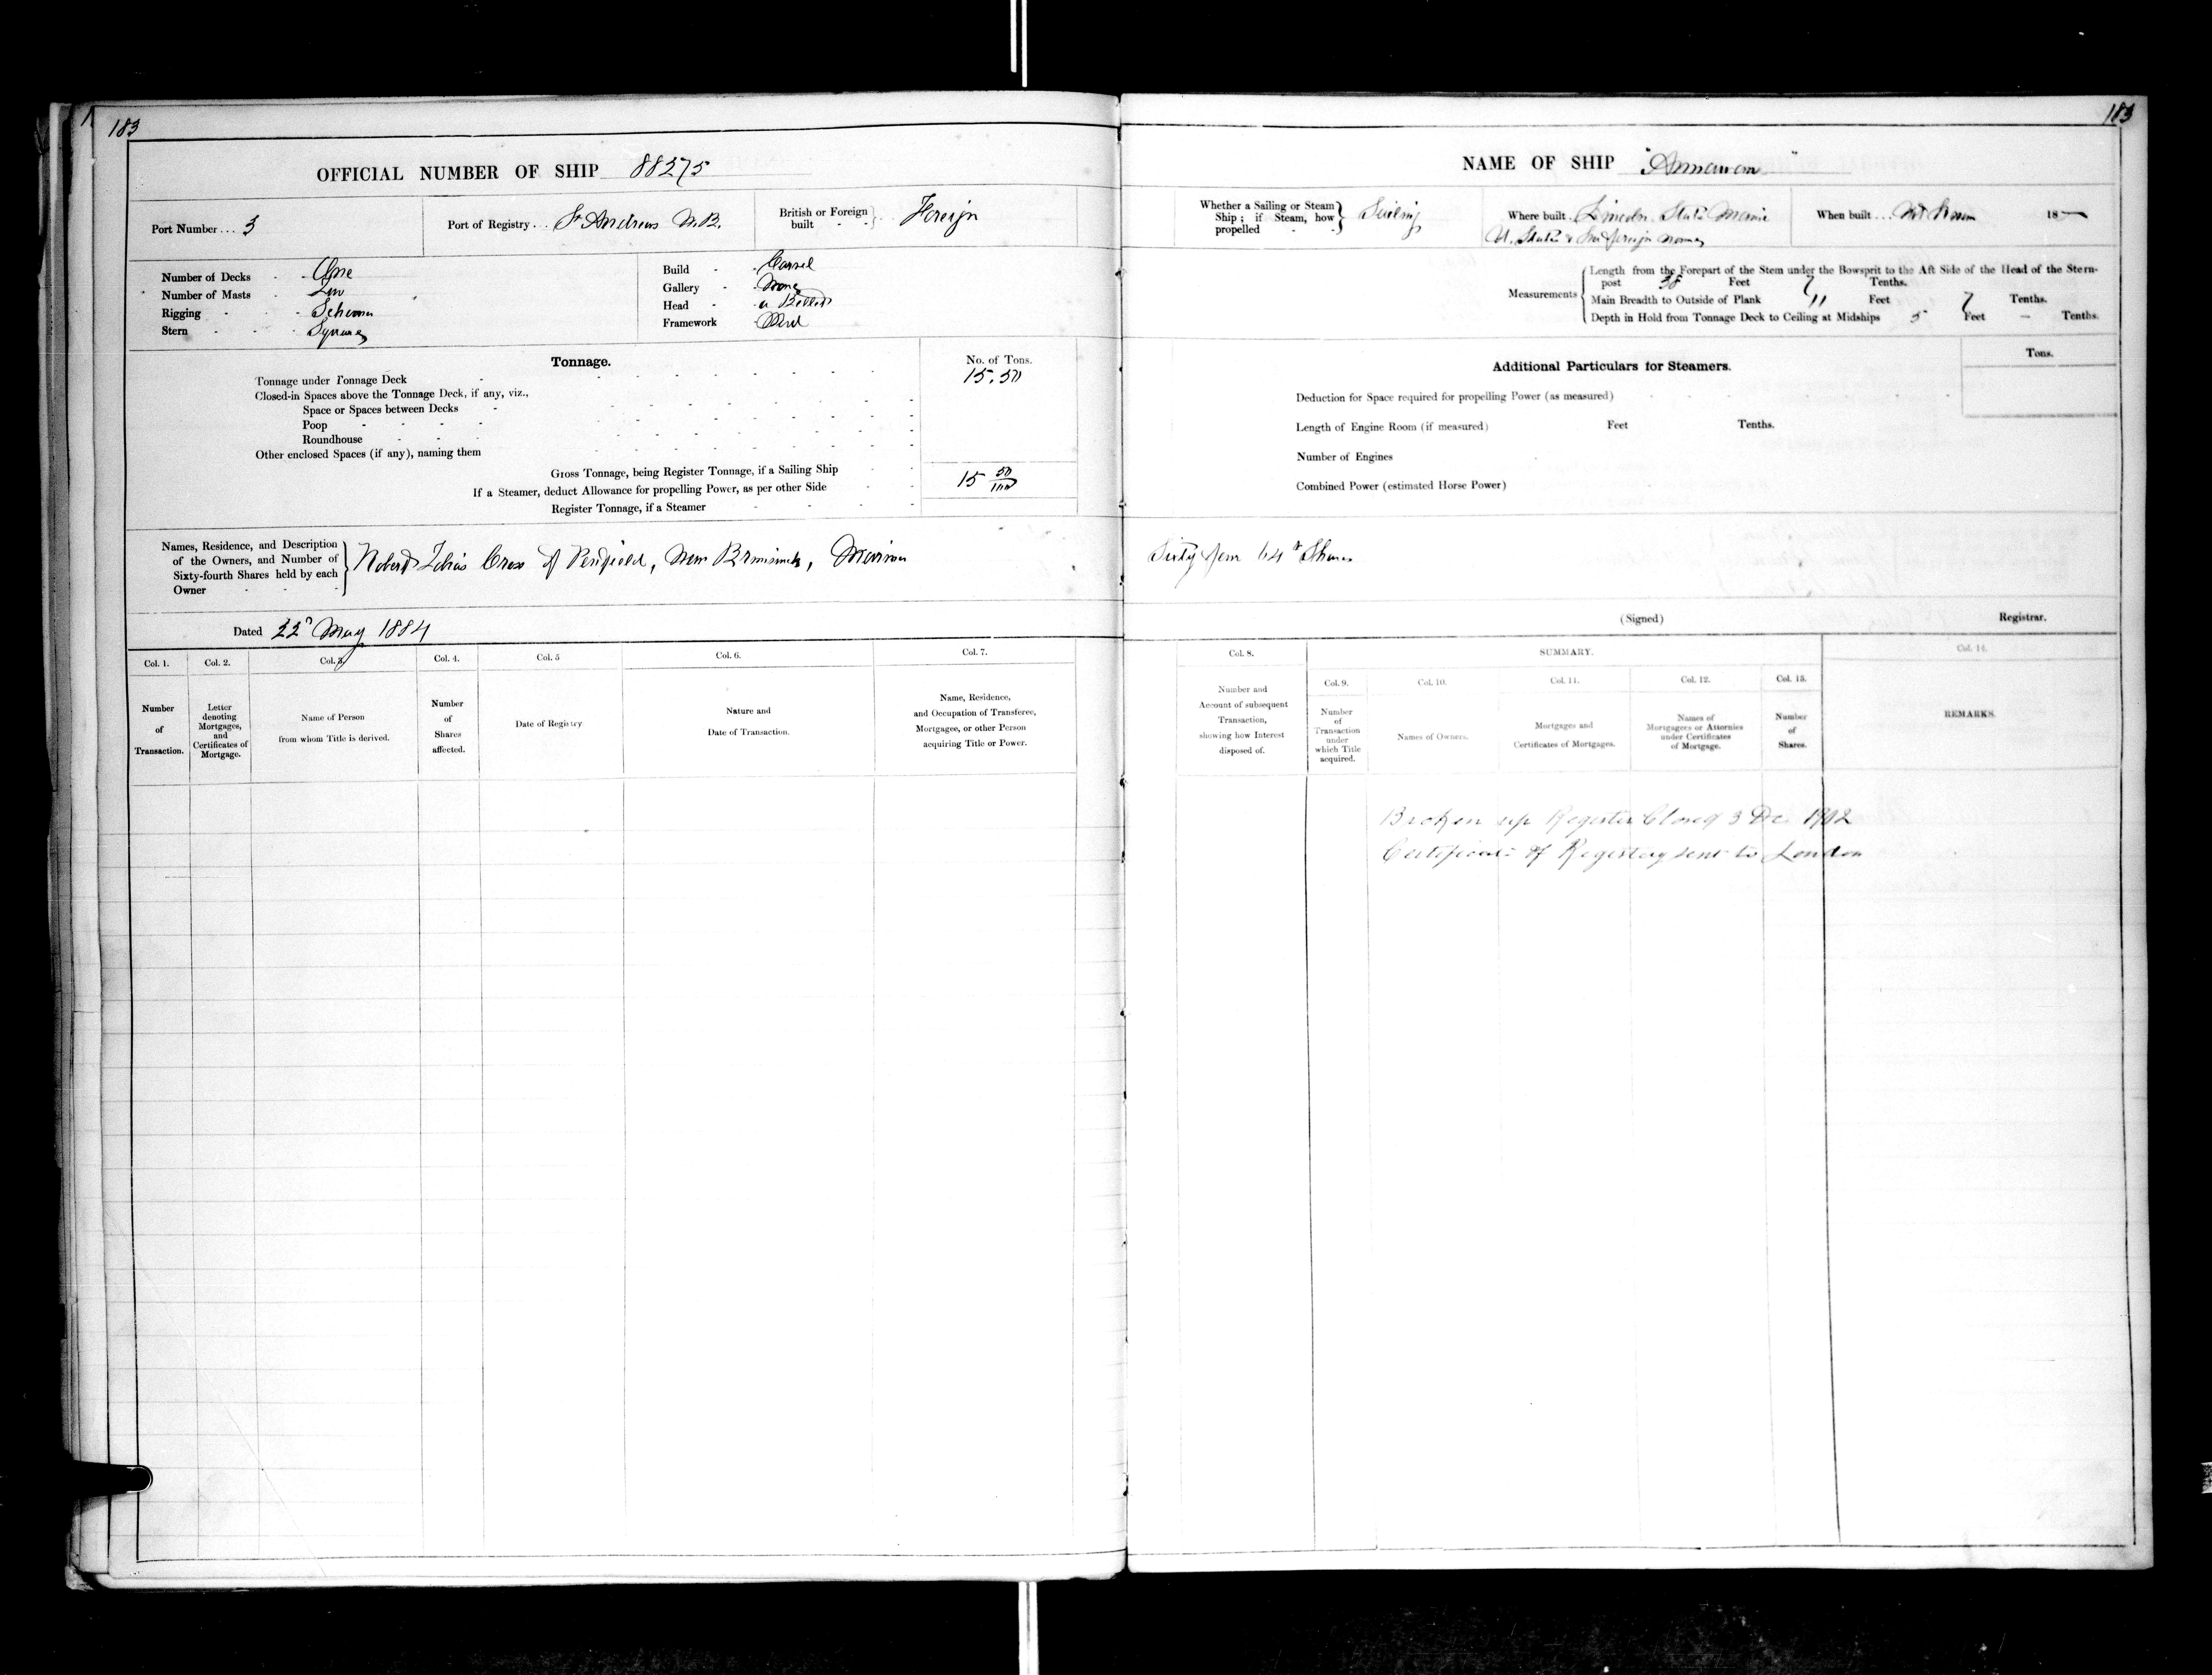 183
183
OFFICIAL NUMBER OF SHIP 88275
Port Number ... 3
Port of Registry . . St Andrews N.B.
British or Foreign built Foreign
Number of Decks One
Number of Masts Two
Rigging Schooner
Stern Square
Build Carvel
Gallery None
Head a Billet
Framework Wood
Tonnage.
No. of Tons.
Tonnage under Tonnage Deck 15.50
Closed-in Spaces above the Tonnage Deck, if any, viz.,
Space or Spaces between Decks
Poop
Roundhouse
Other enclosed Spaces (if any), naming them
Gross Tonnage, being Register Tonnage, if a Sailing Ship 15 50/100
If a Steamer, deduct Allowance for propelling Power, as per other Side
Register Tonnage, if a Steamer
Names, Residence, and Description
of the Owners, and Number of
Sixty-fourth Shares held by each
Owner
Robert Cross of Penfield, New Brunswick, Mariner
Dated 22d May 1884
Col. 1.
Number
of
Transaction.
Col. 2.
Letter
denoting
Mortgages,
and
Certificates of
Mortgage.
Col. 3.
Name of Person
from whom Title is derived.
Col. 4.
Number
of
Shares
affected.
Col. 5
Date of Registry
Col. 6.
Nature and
Date of Transaction.
Col. 7.
Name, Residence,
and Occupation of Transferee,
Mortgagee, or other Person
acquiring Title or Power.
NAME OF SHIP "Annawan"
Whether a Sailing or Steam
Ship ; if Steam, how
propelled
Sailing
Where built . Lincoln State Maine
U. States & foreign name
When built . . . Not Known 18—
Measurements
Length from the Forepart of the Stem under the Bowsprit to the Aft Side of the Head of the Stern-
post 38 Feet 7 Tenths.
Main Breadth to Outside of Plank 11 Feet 7 Tenths.
Depth in Hold from Tonnage Deck to Ceiling at Midships 5 Feet — Tenths.
Additional Particulars for Steamers.
Tons.
Deduction for Space required for propelling Power (as measured)
Length of Engine Room (if measured) Feet Tenths.
Number of Engines
Combined Power (estimated Horse Power)
Sixty four 64th Shares
(Signed) Registrar.
Col. 8.
Number and
Account of subsequent
Transaction,
showing how Interest
disposed of.
SUMMARY.
Col. 9.
Number
of
Transaction
under
which Title
acquired.
Col. 10.
Names of Owners.
Col. 11.
Mortgages and
Certificates of Mortgages.
Col. 12.
Names of
Mortgagees or Attornies
under Certificates
of Mortgage.
Col. 13.
Number
of
Shares.
Col. 14.
REMARKS.
Broken up Register Closed 3 Dec 1902
Certificate of Registry sent to London